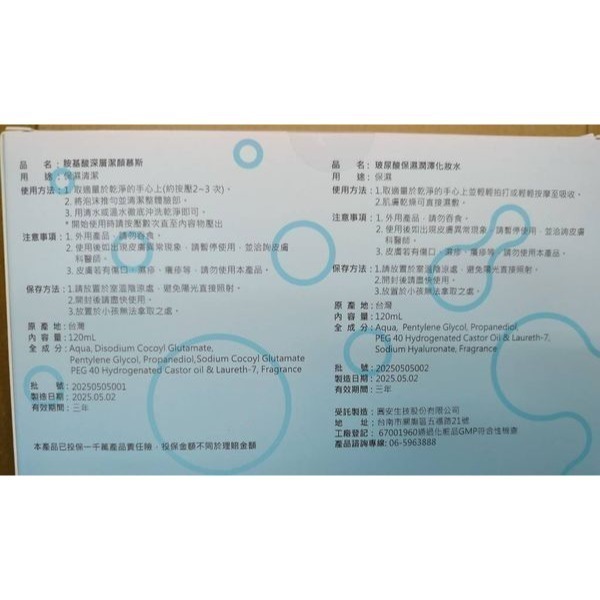 品　　名：胺基酸深層潔顏慕斯
用　　途：保濕清潔
使用方法：1. 取適量於乾淨的手心上(約按壓2~3 次)。
2. 將泡沫推勻並清潔整體臉部。
3. 用清水或溫水徹底沖洗乾淨即可。
* 開始使用時請按壓數次直至內容物壓出
注意事項：1. 外用產品，請勿吞食。
2. 使用後如出現皮膚異常現象，請暫停使用，並洽詢皮膚
科醫師。
3. 皮膚若有傷口、濕疹、癢疹等，請勿使用本產品。
保存方法：1.請放置於室溫陰涼處，避免陽光直接照射。
2.開封後請盡快使用。
3.放置於小孩無法拿取之處。
原 產 地：台灣
內 容 量：120mL
全 成 分：Aqua, Disodium Cocoyl Glutamate,
Pentylene Glycol, Propanediol,Sodium Cocoyl Glutamate
PEG 40 Hydrogenated Castor oil & Laureth-7, Fragrance
批　　號：20250505001
製造日期：2025.05.02
有效期間：三年
本產品已投保一千萬產品責任險，投保金額不同於理賠金額
品　　名：玻尿酸保濕潤澤化妝水
用　　途：保濕
使用方法：1.取適量於乾淨的手心上並輕輕拍打或輕輕按摩至吸收。
2.肌膚乾燥可直接濕敷。
注意事項：1. 外用產品，請勿吞食。
2. 使用後如出現皮膚異常現象，請暫停使用，並洽詢皮膚
科醫師。
3. 皮膚若有傷口、濕疹、癢疹等，請勿使用本產品。
保存方法：1.請放置於室溫陰涼處，避免陽光直接照射。
2.開封後請盡快使用。
3.放置於小孩無法拿取之處。
原 產 地：台灣
內 容 量：120mL
全 成 分：Aqua, Pentylene Glycol, Propanediol,
PEG 40 Hydrogenated Castor oil & Laureth-7,
Sodium Hyaluronate, Fragrance
批　　號：20250505002
製造日期：2025.05.02
有效期間：三年
受託製造：圓安生技股份有限公司
地　　址：台南市關廟區五護路21號
工廠登記：67001960通過化粧品GMP符合性檢查
產品諮詢專線: 06-5963888